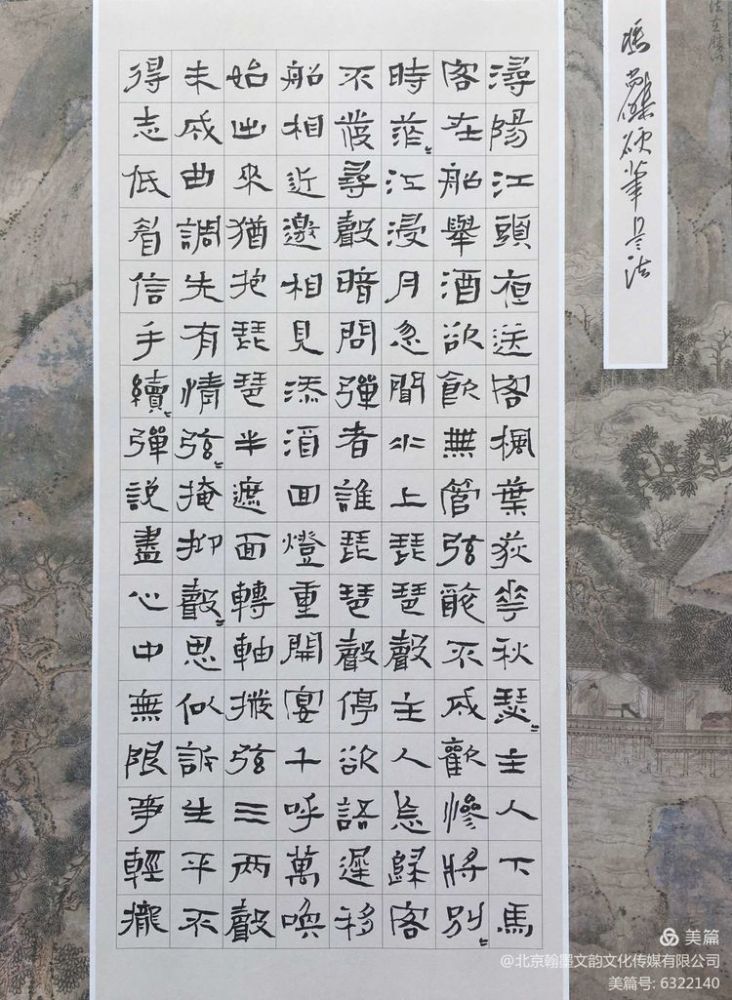 潯陽江頭夜送客楓葉荻花秋瑟〻主人下馬
客在船舉酒欲飲無管弦醉不成歡慘將別〻
時茫〻江浸月忽聞水上琵琶聲主人忘歸客
不發尋聲暗問彈者誰琵琶聲停欲語遲移
船相近邀相見添酒回燈重開宴千呼萬喚
始出來猶抱琵琶半遮面轉軸撥弦三兩聲
未成曲調先有情弦〻掩抑聲〻思似訴生平不
得志低眉信手續〻彈說盡心中無限事輕攏
美篇
@北京翰墨文韵文化传媒有限公司
美篇号: 6322140